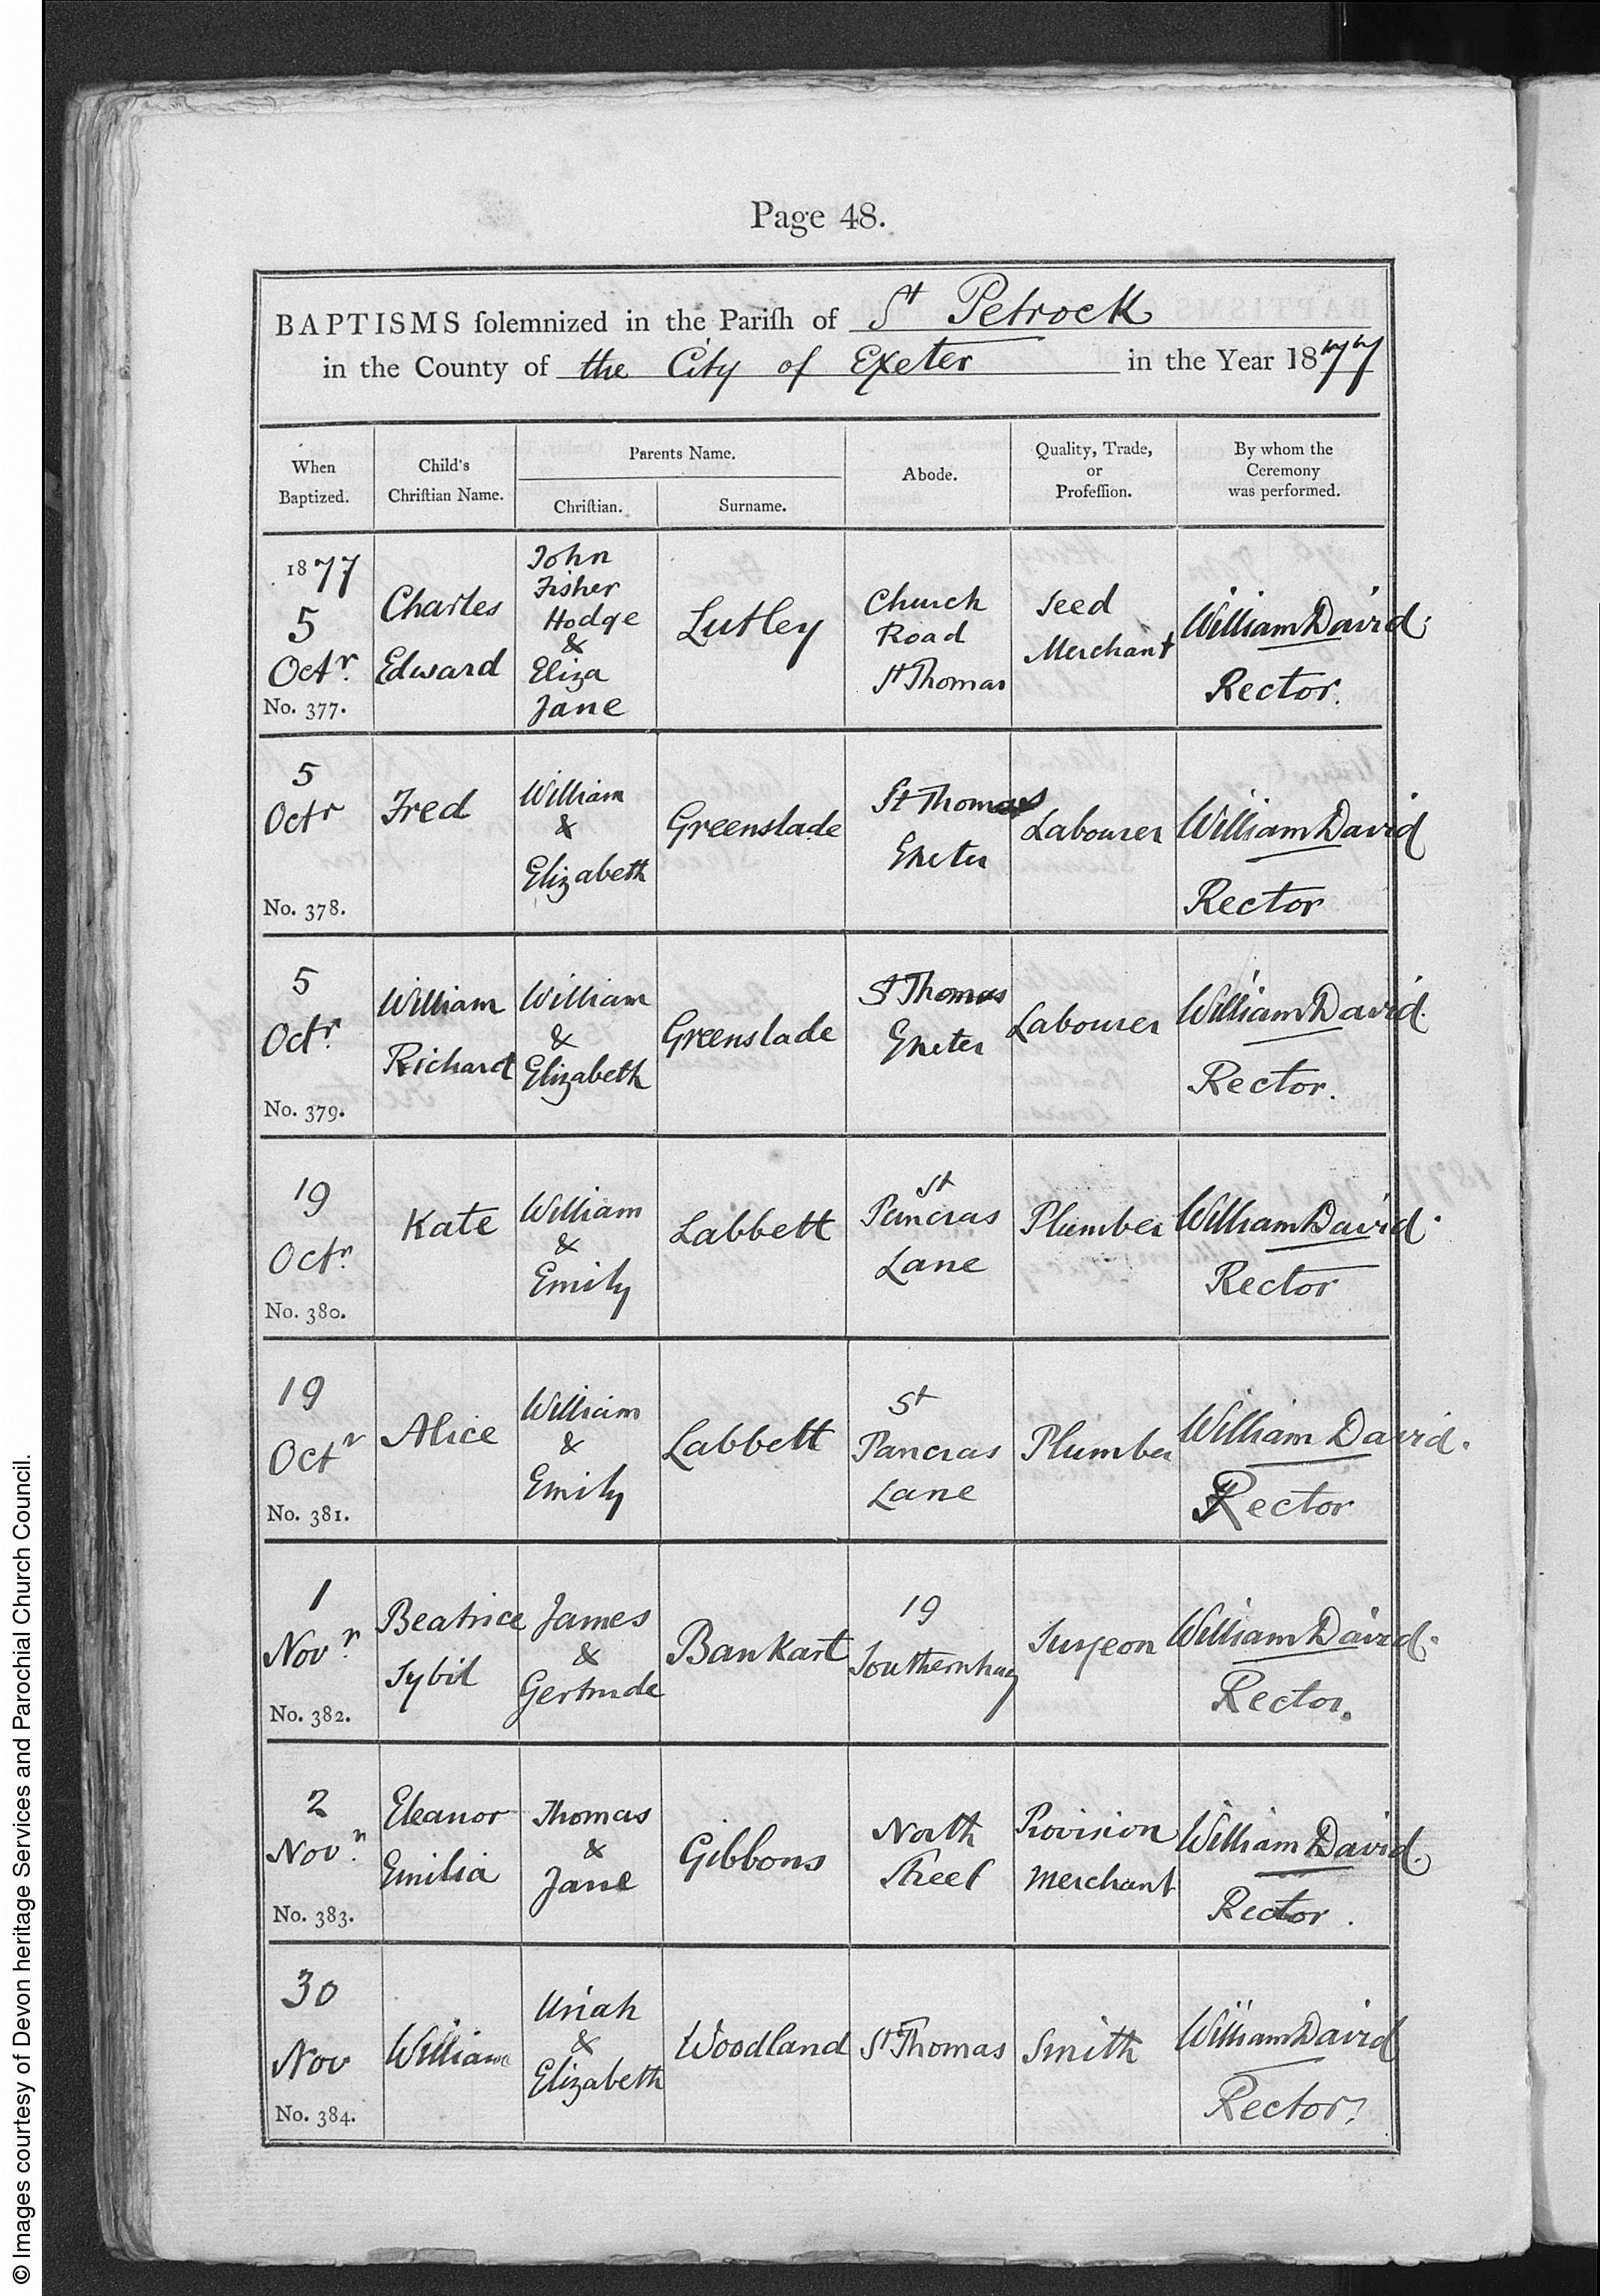 Page 48.
BAPTISMS ſolemnized in the Pariſh of St Petrock
in the County of the City of Exeter in the Year 1877
When Baptized.
Child's Chriſtian Name.
Parents Name.
Chriſtian.
Surname.
Abode.
Quality, Trade, or Profeſſion.
By whom the Ceremony was performed.
1877
5
Octr.
No. 377.
Charles
Edward
John
Fisher
Hodge
&
Eliza
Jane
Lutley
Church
Road
St Thomas
Seed
Merchant
William David
Rector.
5
Octr
No. 378.
Fred
William
&
Elizabeth
Greenslade
St Thomas
Exeter
Labourer
William David
Rector
5
Octr.
No. 379.
William
Richard
William
&
Elizabeth
Greenslade
St Thomas
Exeter
Labourer
William David.
Rector.
19
Octr.
No. 380.
Kate
William
&
Emily
Labbett
St
Pancras
Lane
Plumber
William David.
Rector
19
Octr
No. 381.
Alice
William
&
Emily
Labbett
St
Pancras
Lane
Plumber
William David.
Rector
1
Novr.
No. 382.
Beatrice
Sybil
James
&
Gertrude
Bankart
19
Southernhay
Surgeon
William David.
Rector.
2
Novr.
No. 383.
Eleanor
Emilia
Thomas
&
Jane
Gibbons
North
Street
Provision
Merchant
William David.
Rector.
30
Nov
No. 384.
William
Uriah
&
Elizabeth
Woodland
St Thomas
Smith
William David
Rector.
© Images courtesy of Devon heritage Services and Parochial Church Council.